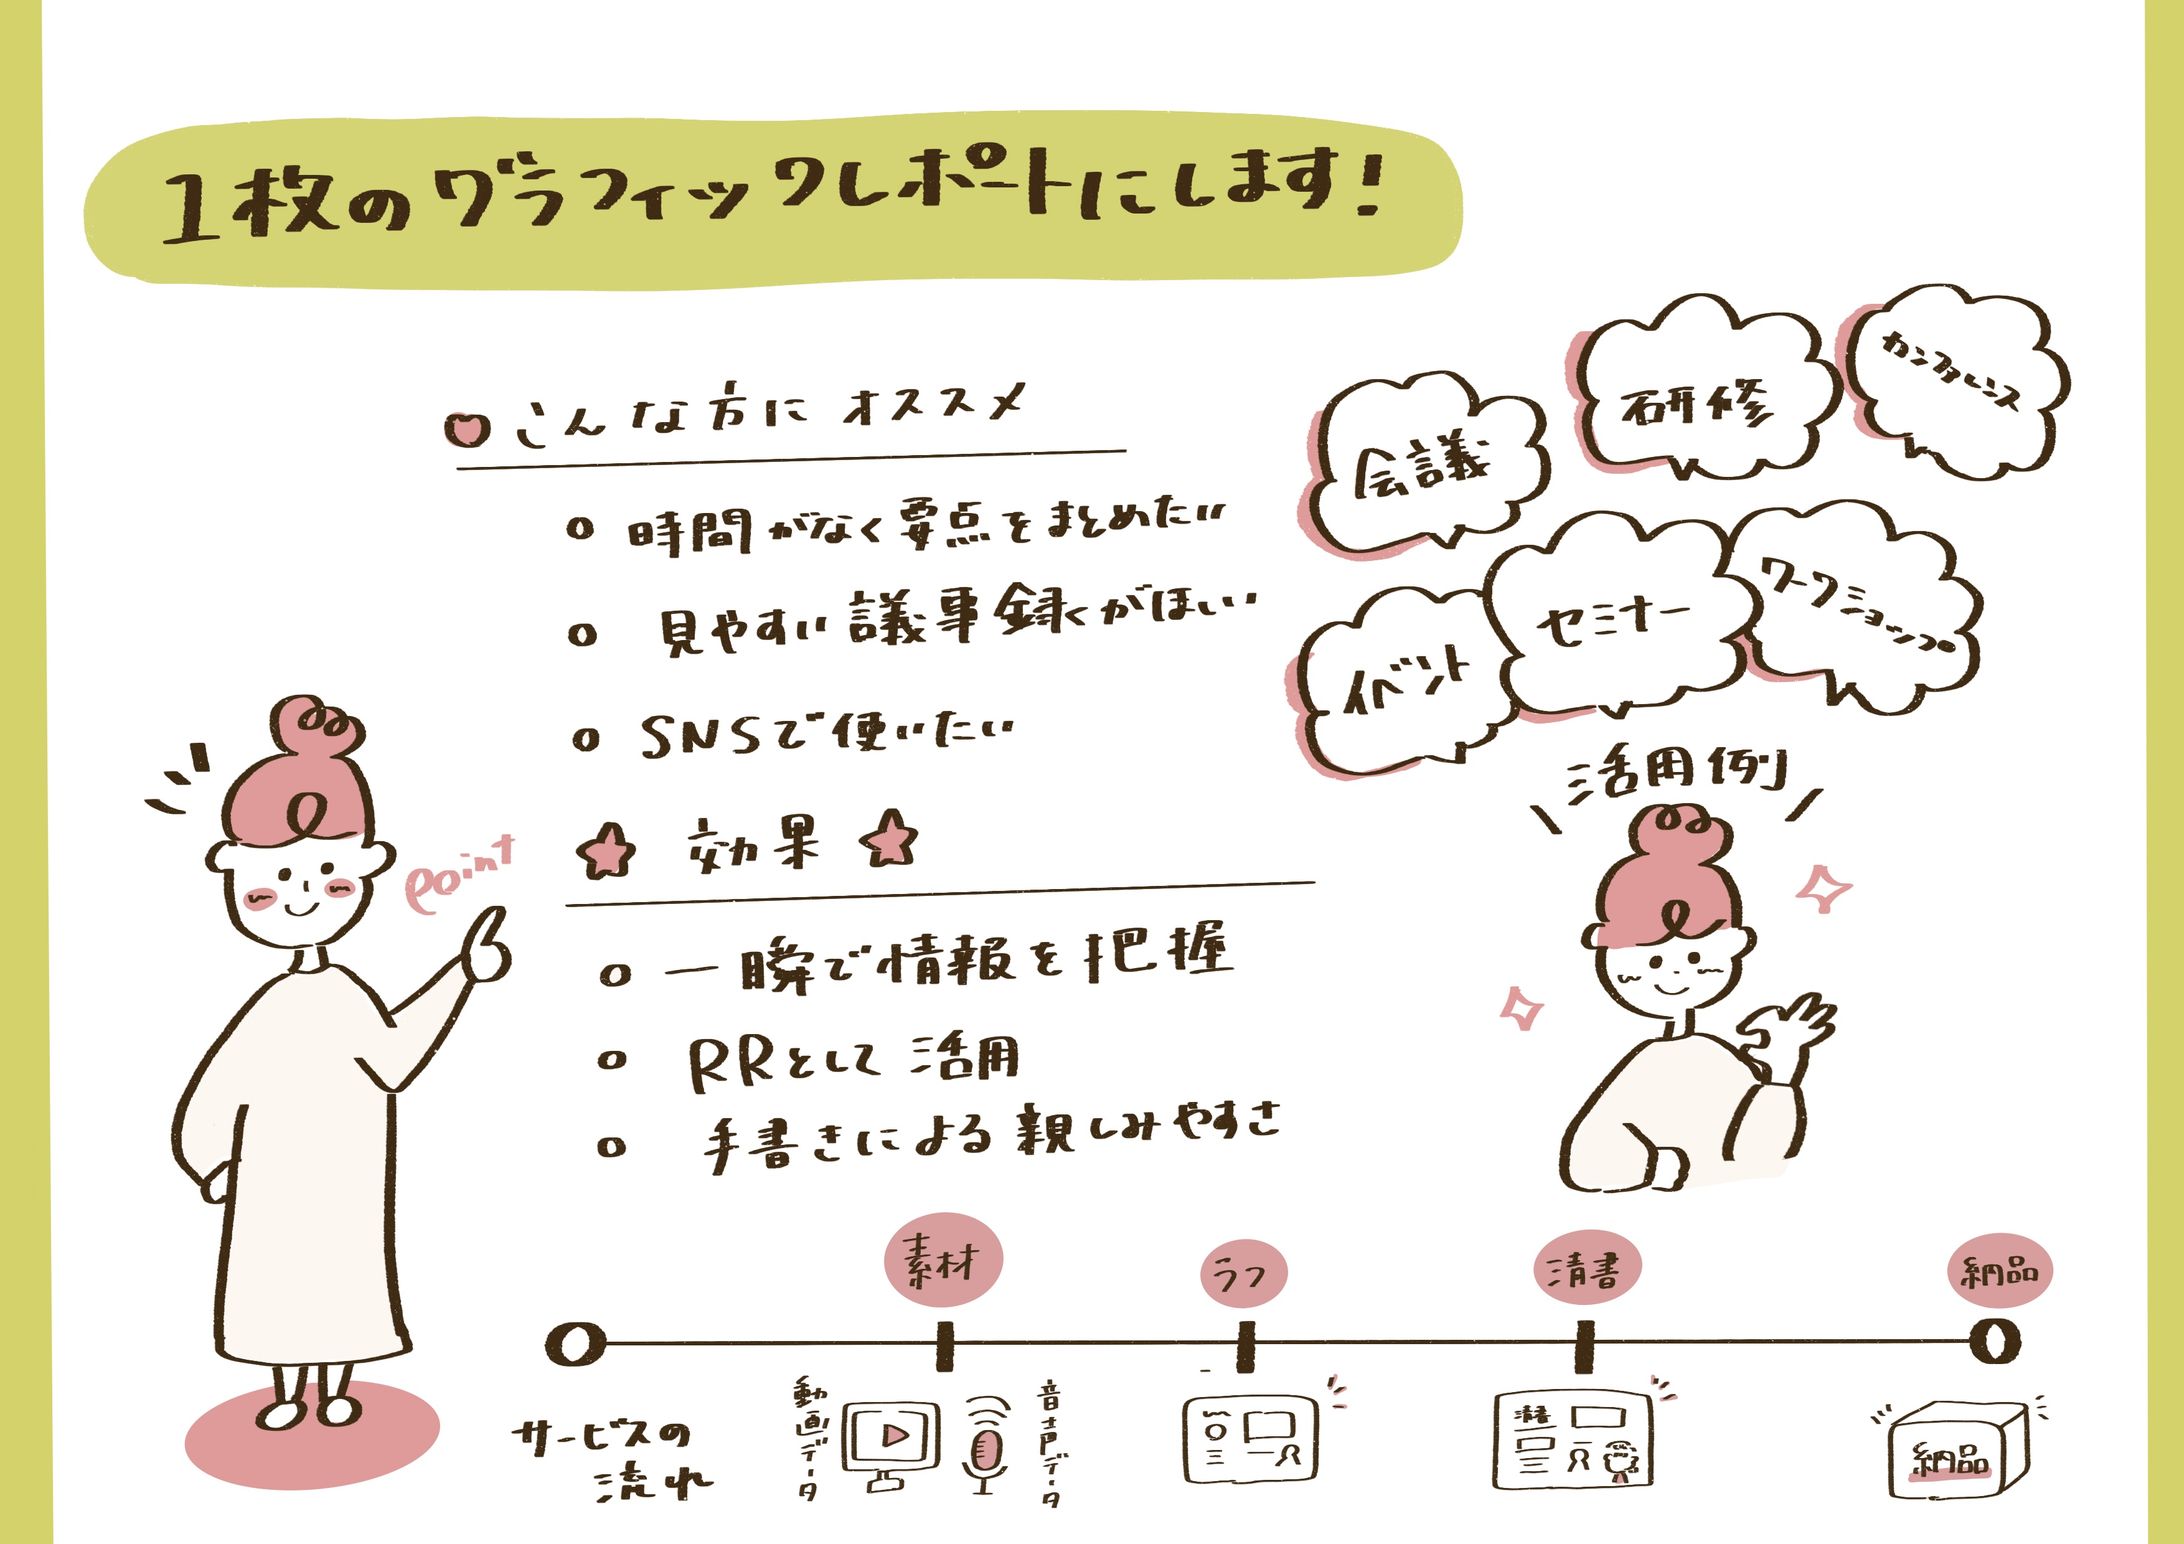 1枚のグラフィックレポートにします!
こんな方にオススメ
時間がなく要点をまとめたい
見やすい議事録くがほしい
SNSで使いたい
効果
一瞬で情報を把握
RRとして活用
手書きによる親しみやすさ
point
会議
研修
カンファレンス
イベント
セミナー
ワークショップ
活用例
サービスの
流れ
素材
動画データ
音声データ
ラフ
清書
清書
納品
納品